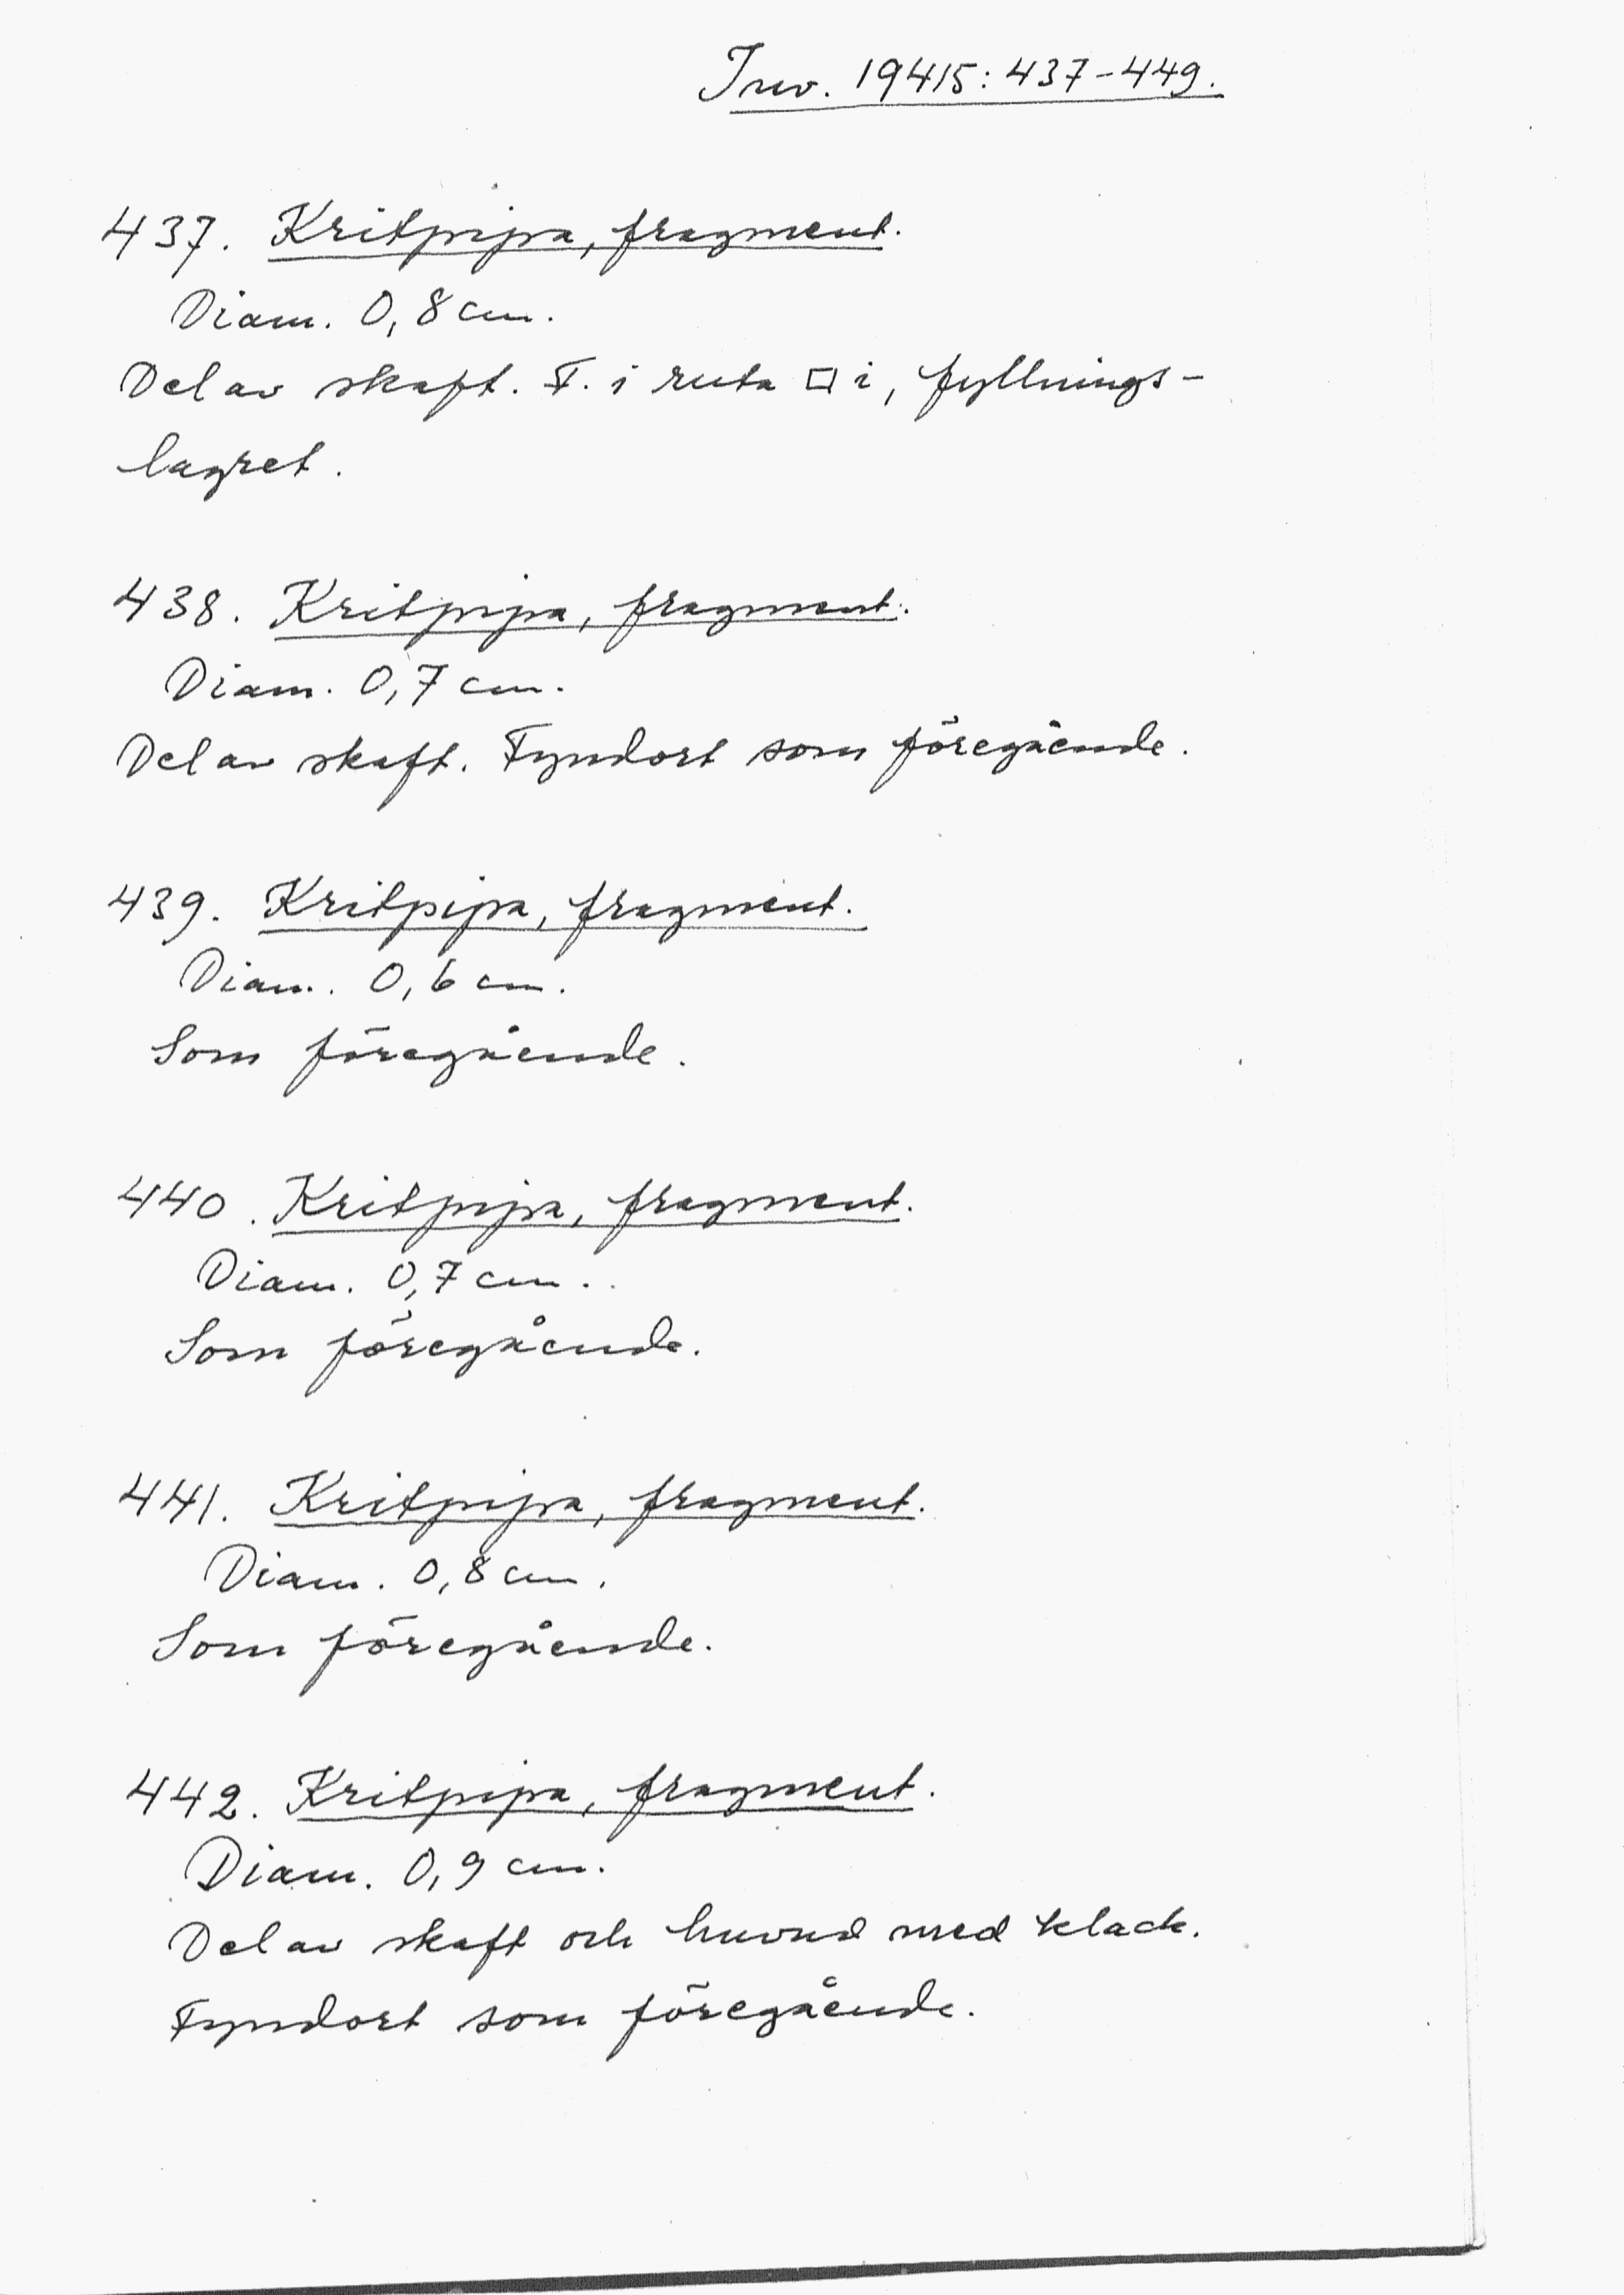 Inv. 19415: 437-449.
437. Kritpipa, fragment.
Diam. 0,8 cm.
Del av skaft. F. i ruta □ i, fyllnings-
lagret.
438. Kritpipa, fragment.
Diam. 0,7 cm.
Del av skaft. Fyndort som föregående.
439. Kritpipa, fragment.
Diam. 0,6 cm.
Som föregående.
440. Kritpipa, fragment.
Diam. 0,7 cm.
Som föregående.
441. Kritpipa, fragment.
Diam. 0,8 cm.
Som föregående.
442. Kritpipa, fragment.
Diam. 0,9 cm.
Del av skaft och huvud med klack.
Fyndort som föregående.